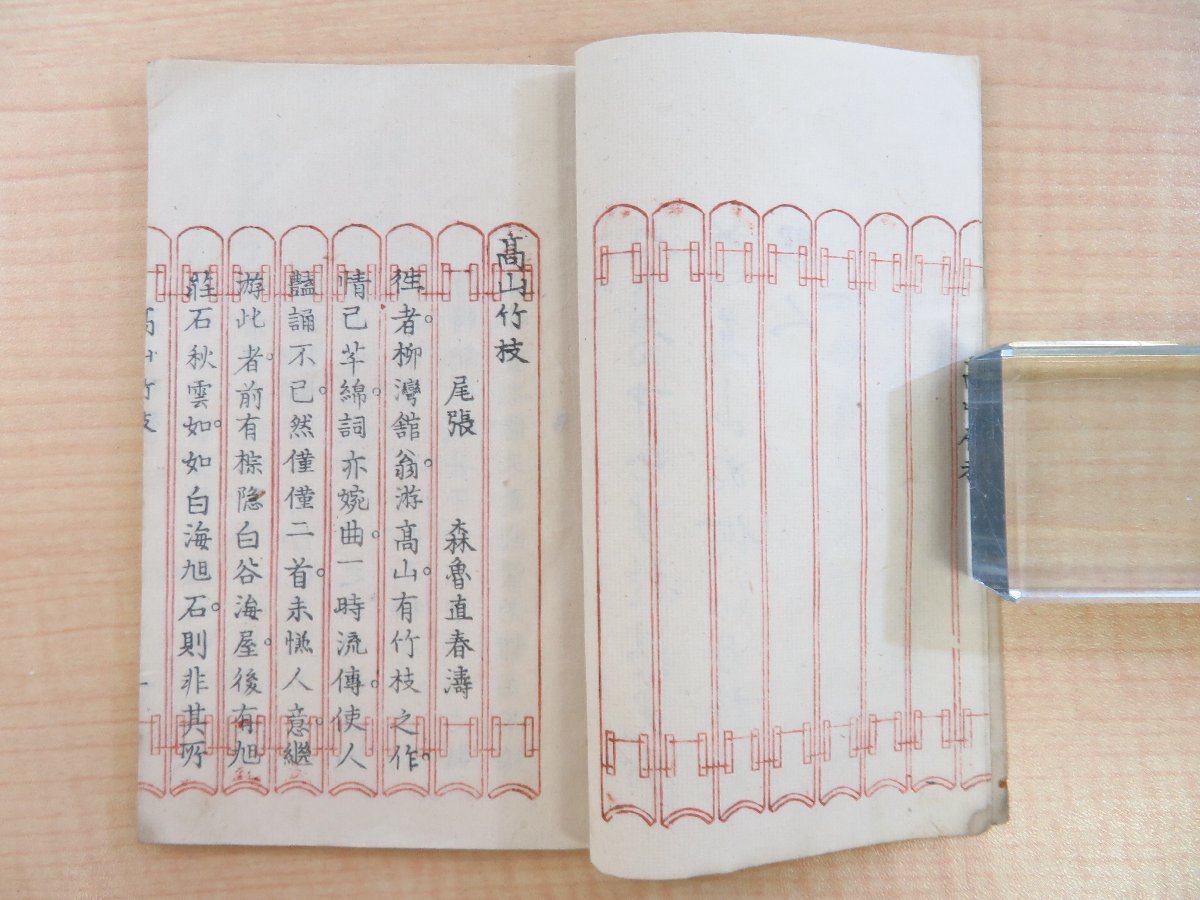 高山竹枝
尾張 森魯直春濤
徃者。柳灣舘翁。游高山。有竹枝之作。
情已芊綿。詞亦婉曲。一時流傳。使人
豔誦不已。然僅僅二首。未愜人意。繼
游此者。前有棕隠白谷海屋。後有旭
莊石秋雲如。如白海旭石。則非其所
高山竹枝